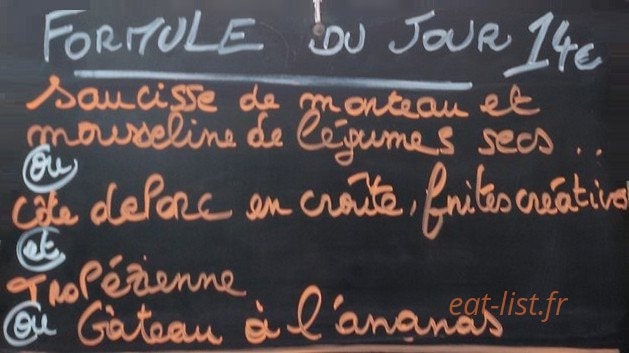 FORMULE DU JOUR 14€
Saucisse de monteau et
mousseline de légumes secs ..
ou
Côte de Porc en croûte, frites créative
et
TROPézienne
ou Gâteau à l'ananas
eat-list.fr